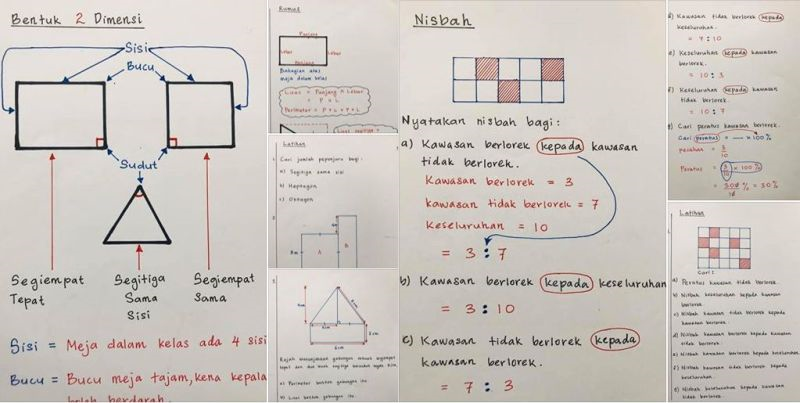 Bentuk 2 Dimensi
Sisi
Bucu
Sudut
Segiempat
Tepat
Segitiga
Sama
Sisi
Segiempat
Sama
Sisi = Meja dalam kelas ada 4 sisi
Bucu = Bucu meja tajam, kena kepala
boleh berdarah.
Rumus
Panjang
Lebar
Lebar
Panjang
Bahagian atas
meja dalam kelas
Luas = Panjang x Lebar
= P x L
Perimeter = P + L + P + L
Latihan
1. Cari jumlah pepenjuru bagi :
a) Segitiga sama sisi
b) Heptagon
c) Oktagon
2.
A
B
3.
a) Perimeter bentuk gabungan itu
b) Luas bentuk gabungan itu
Nisbah
Nyatakan nisbah bagi :
a) Kawasan berlorek kepada kawasan
tidak berlorek.
Kawasan berlorek = 3
Kawasan tidak berlorek = 7
Keseluruhan = 10
= 3 : 7
b) Kawasan berlorek kepada keseluruhan
= 3 : 10
c) Kawasan tidak berlorek kepada
kawasan berlorek.
= 7 : 3
d) Kawasan tidak berlorek kepada
keseluruhan.
= 7 : 10
e) Keseluruhan kepada kawasan
berlorek.
= 10 : 3
f) Keseluruhan kepada kawasan
tidak berlorek.
= 10 : 7
g) Cari peratus kawasan berlorek.
Cari peratus = — x 100%
pecahan = 3/10
Peratus = 3/10 x 100%
= 300/10 % = 30%
Latihan
1.
Cari :
a) Peratus kawasan tidak berlorek.
b) Nisbah keseluruhan kepada kawasan
berlorek.
c) Nisbah kawasan tidak berlorek kepada
kawasan berlorek.
d) Nisbah kawasan berlorek kepada kawasan
tidak berlorek.
e) Nisbah kawasan berlorek kepada keseluruhan.
f) Nisbah kawasan tidak berlorek kepada
keseluruhan.
g) Nisbah keseluruhan kepada kawasan
tidak berlorek.